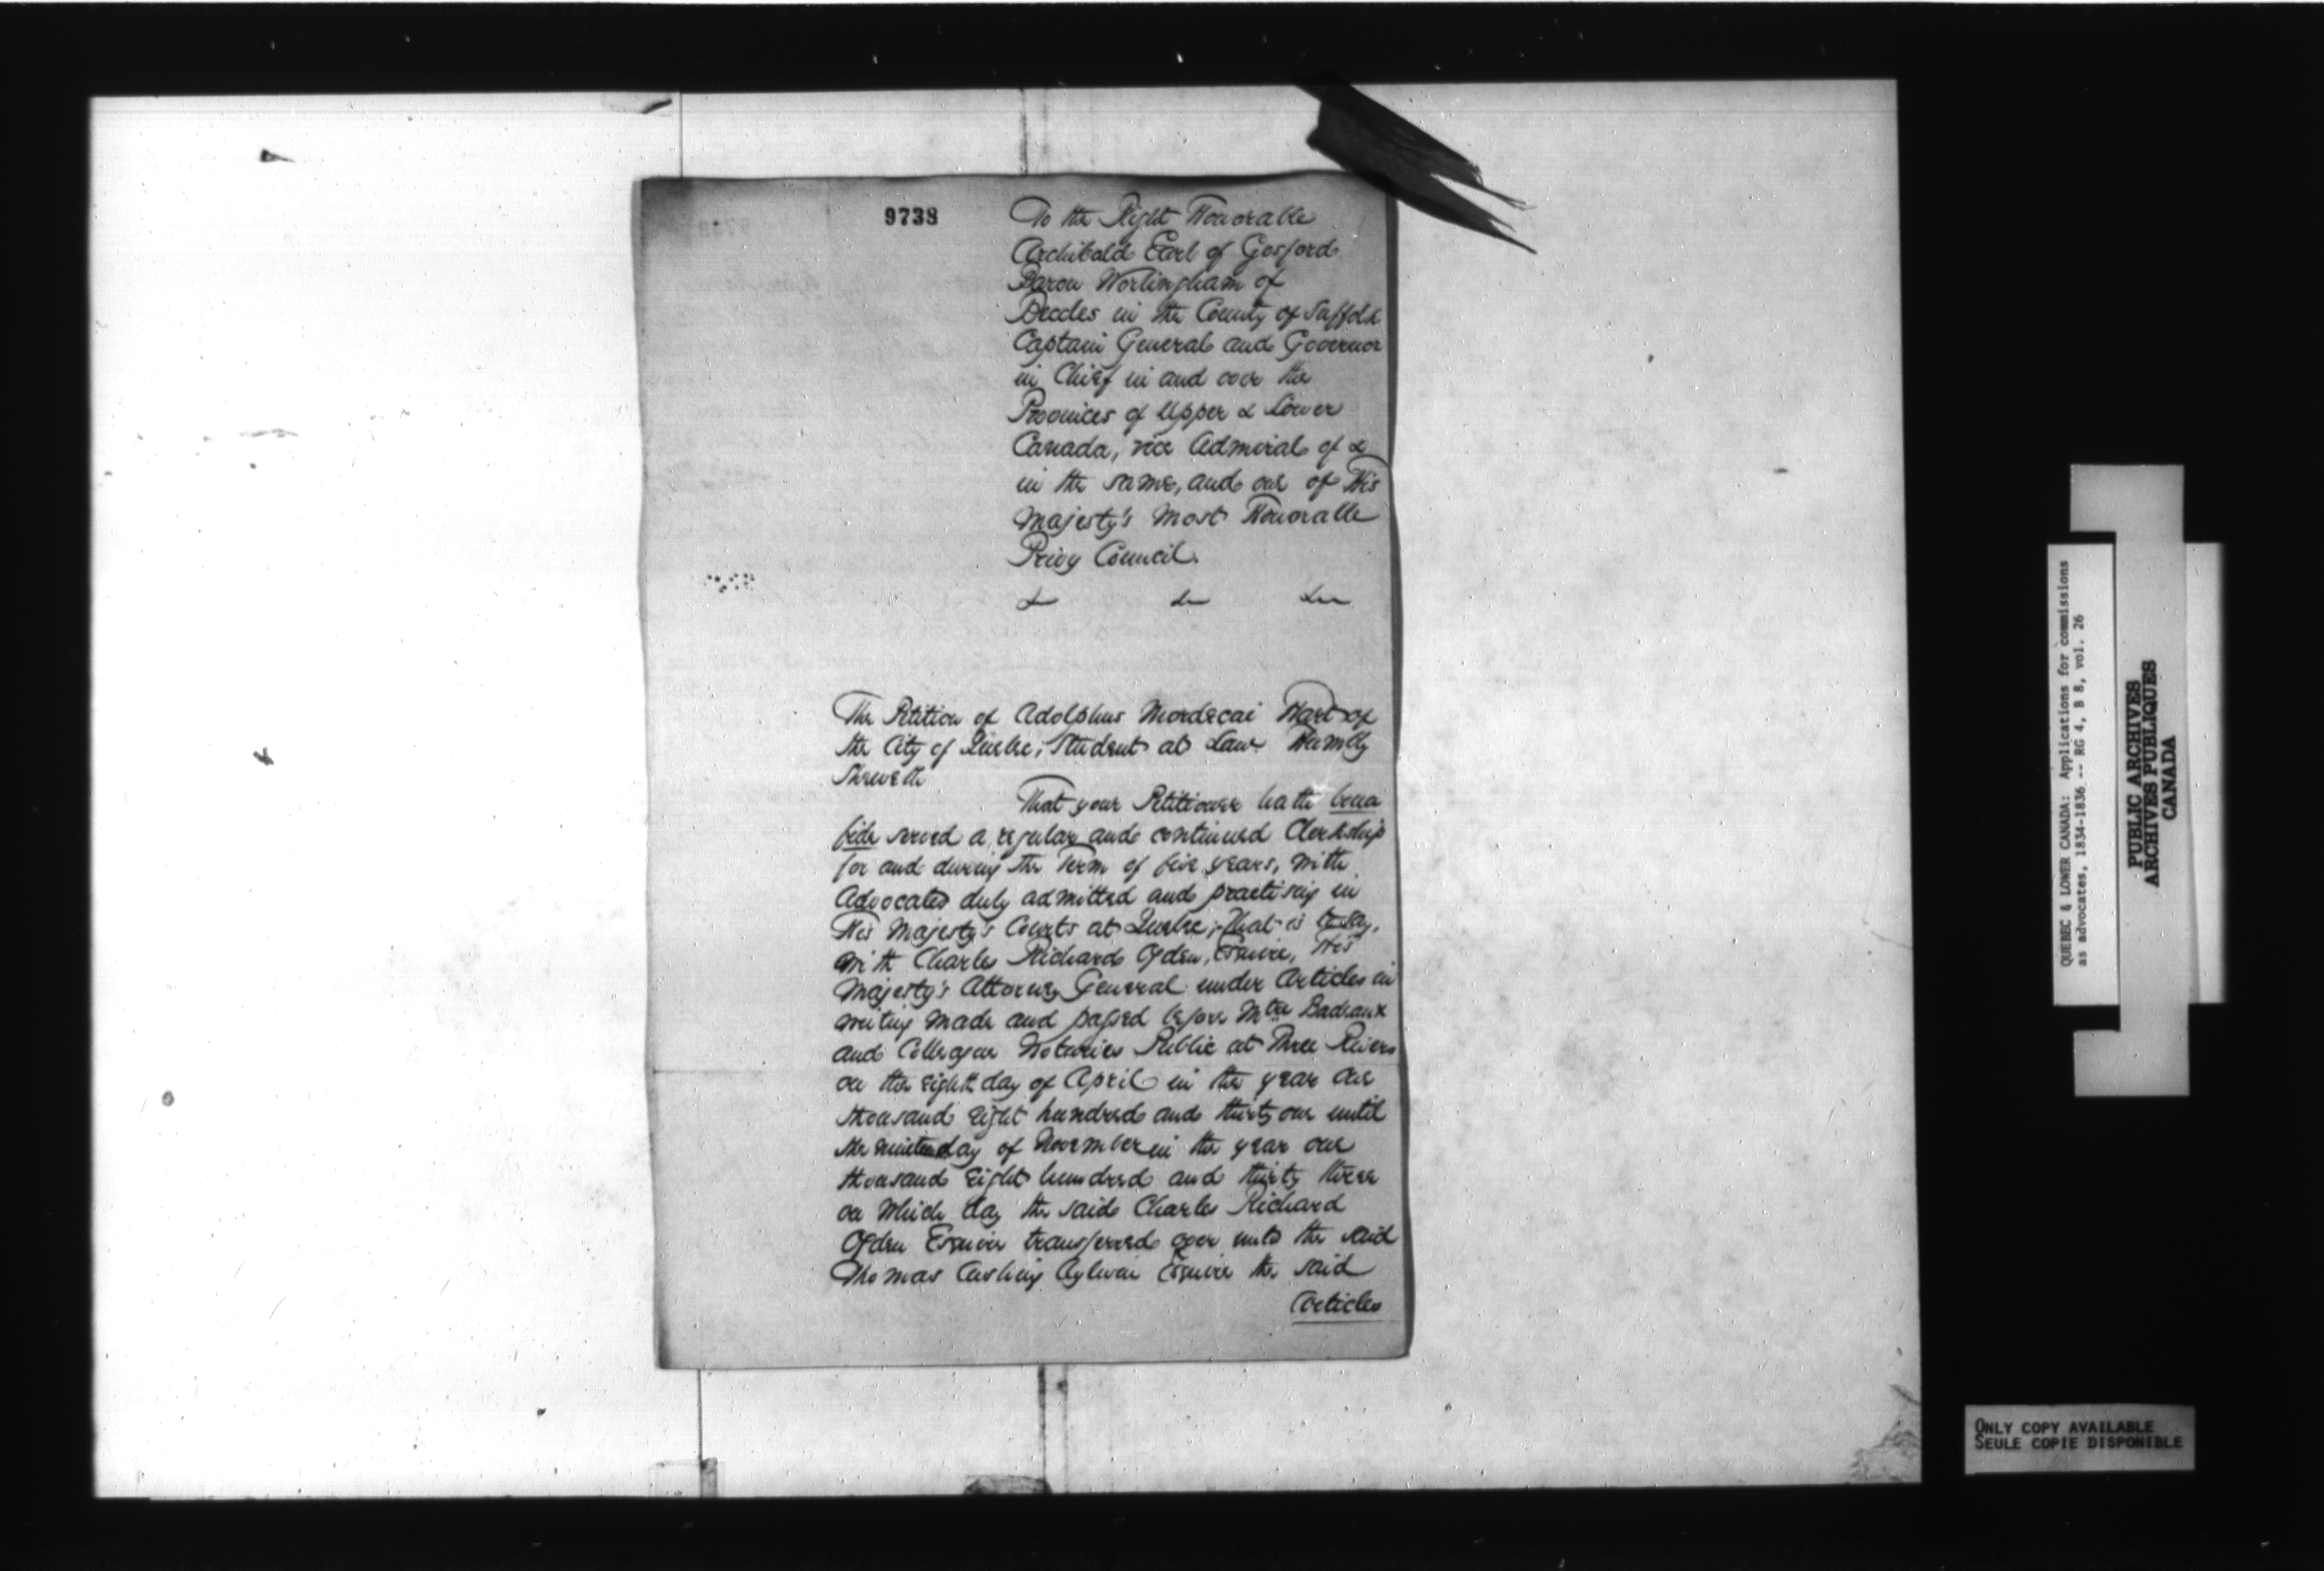 9738
To the Right Honorable
Archibald Earl of Gosford
Baron Worlingham of
Beccles in the County of Suffolk
Captain General and Governor
in Chief in and over the
Provinces of Upper & Lower
Canada, vice Admiral of &
in the same, and one of His
Majesty's Most Honorable
Privy Council.
&c &c &c
The Petition of Adolphus Mordecai Hart of
the City of Quebec, Student at Law Humbly
Sheweth
That your Petitioner hath bona
fide served a regular and continued Clerkship
for and during the Term of five years, with
Advocates duly admitted and practising in
His Majesty's Courts at Quebec, that is to say,
with Charles Richard Ogden, Esquire, His
Majesty's Attorney General under Articles in
writing made and passed before Mtre Badeaux
and Colleague Notaries Public at Three Rivers
on the eighth day of April in the year one
thousand eight hundred and thirty one until
the day of November in the year one
thousand eight hundred and thirty three
on which day the said Charles Richard
Ogden Esquire transferred over unto the said
Thomas Cushing Aylwin Esquire the said
Articles
QUEBEC & LOWER CANADA: Applications for commissions
as advocates, 1834-1836 -- RG 4, B 8, vol. 26
PUBLIC ARCHIVES
ARCHIVES PUBLIQUES
CANADA
ONLY COPY AVAILABLE
SEULE COPIE DISPONIBLE